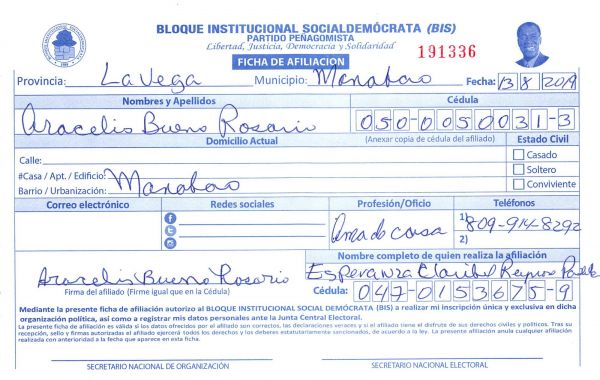 BLOQUE INSTITUCIONAL SOCIALDEMÓCRATA (BIS)
PARTIDO PEÑAGOMISTA
Libertad, Justicia, Democracia y Solidaridad
FICHA DE AFILIACION
191336
Provincia: La Vega Municipio: Manabao Fecha: 13 8 2019
Nombres y Apellidos Cédula
Aracelis Bueno Rosario 050-0050031-3
Domicilio Actual (Anexar copia de cédula del afiliado) Estado Civil
Calle: Casado
#Casa / Apt. / Edificio: Soltero
Barrio / Urbanización: Manabao Conviviente
Correo electrónico Redes sociales Profesión/Oficio Teléfonos
Ama de casa 1) 809-914-8292
2)
Nombre completo de quien realiza la afiliación
Aracelis Bueno Rosario Esperanza Claribel
Firma del afiliado (Firme igual que en la Cédula) Cédula: 047-0153675-9
Mediante la presente ficha de afiliación autorizo al BLOQUE INSTITUCIONAL SOCIAL DEMÓCRATA (BIS) a realizar mi inscripción única y exclusiva en dicha
organización política, así como a registrar mis datos personales ante la Junta Central Electoral.
La presente ficha de afiliación es válida si los datos ofrecidos por el afiliado son correctos, las declaraciones veraces y si el afiliado tiene el disfrute de sus derechos civiles y políticos. Tras su
recepción, sello y firmas autorizadas el afiliado ejercerá todos los derechos y los deberes estatutariamente sancionados, de acuerdo a la ley. La presente afiliación anula cualquier afiliación
realizada con anterioridad a la fecha que aparece en esta ficha.
SECRETARIO NACIONAL DE ORGANIZACIÓN SECRETARIO NACIONAL ELECTORAL